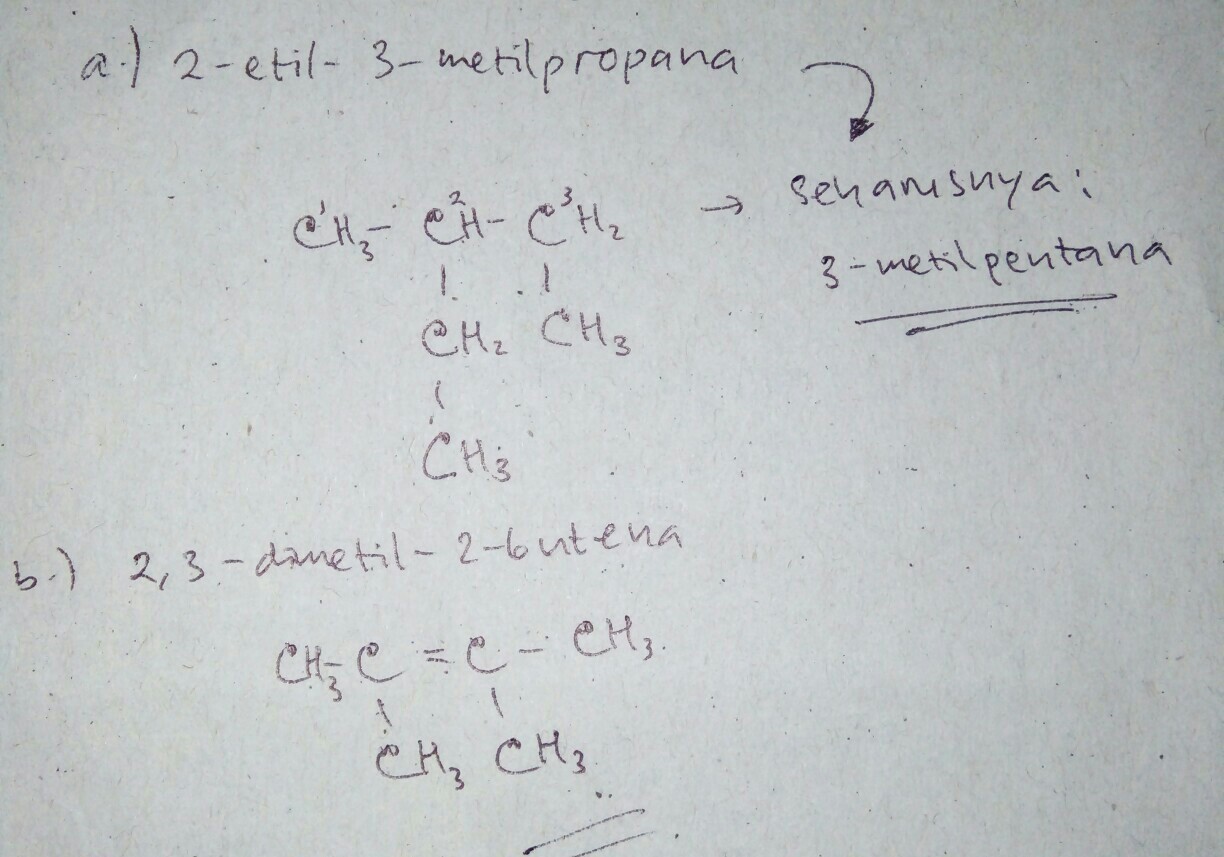 a.) 2-etil-3-metilpropana
C¹H₃-C²H-C³H₂ → seharusnya:
3-metilpentana
CH₂ CH₃
CH₃
b.) 2,3-dimetil-2-butena
CH₃-C=C-CH₃
CH₃ CH₃